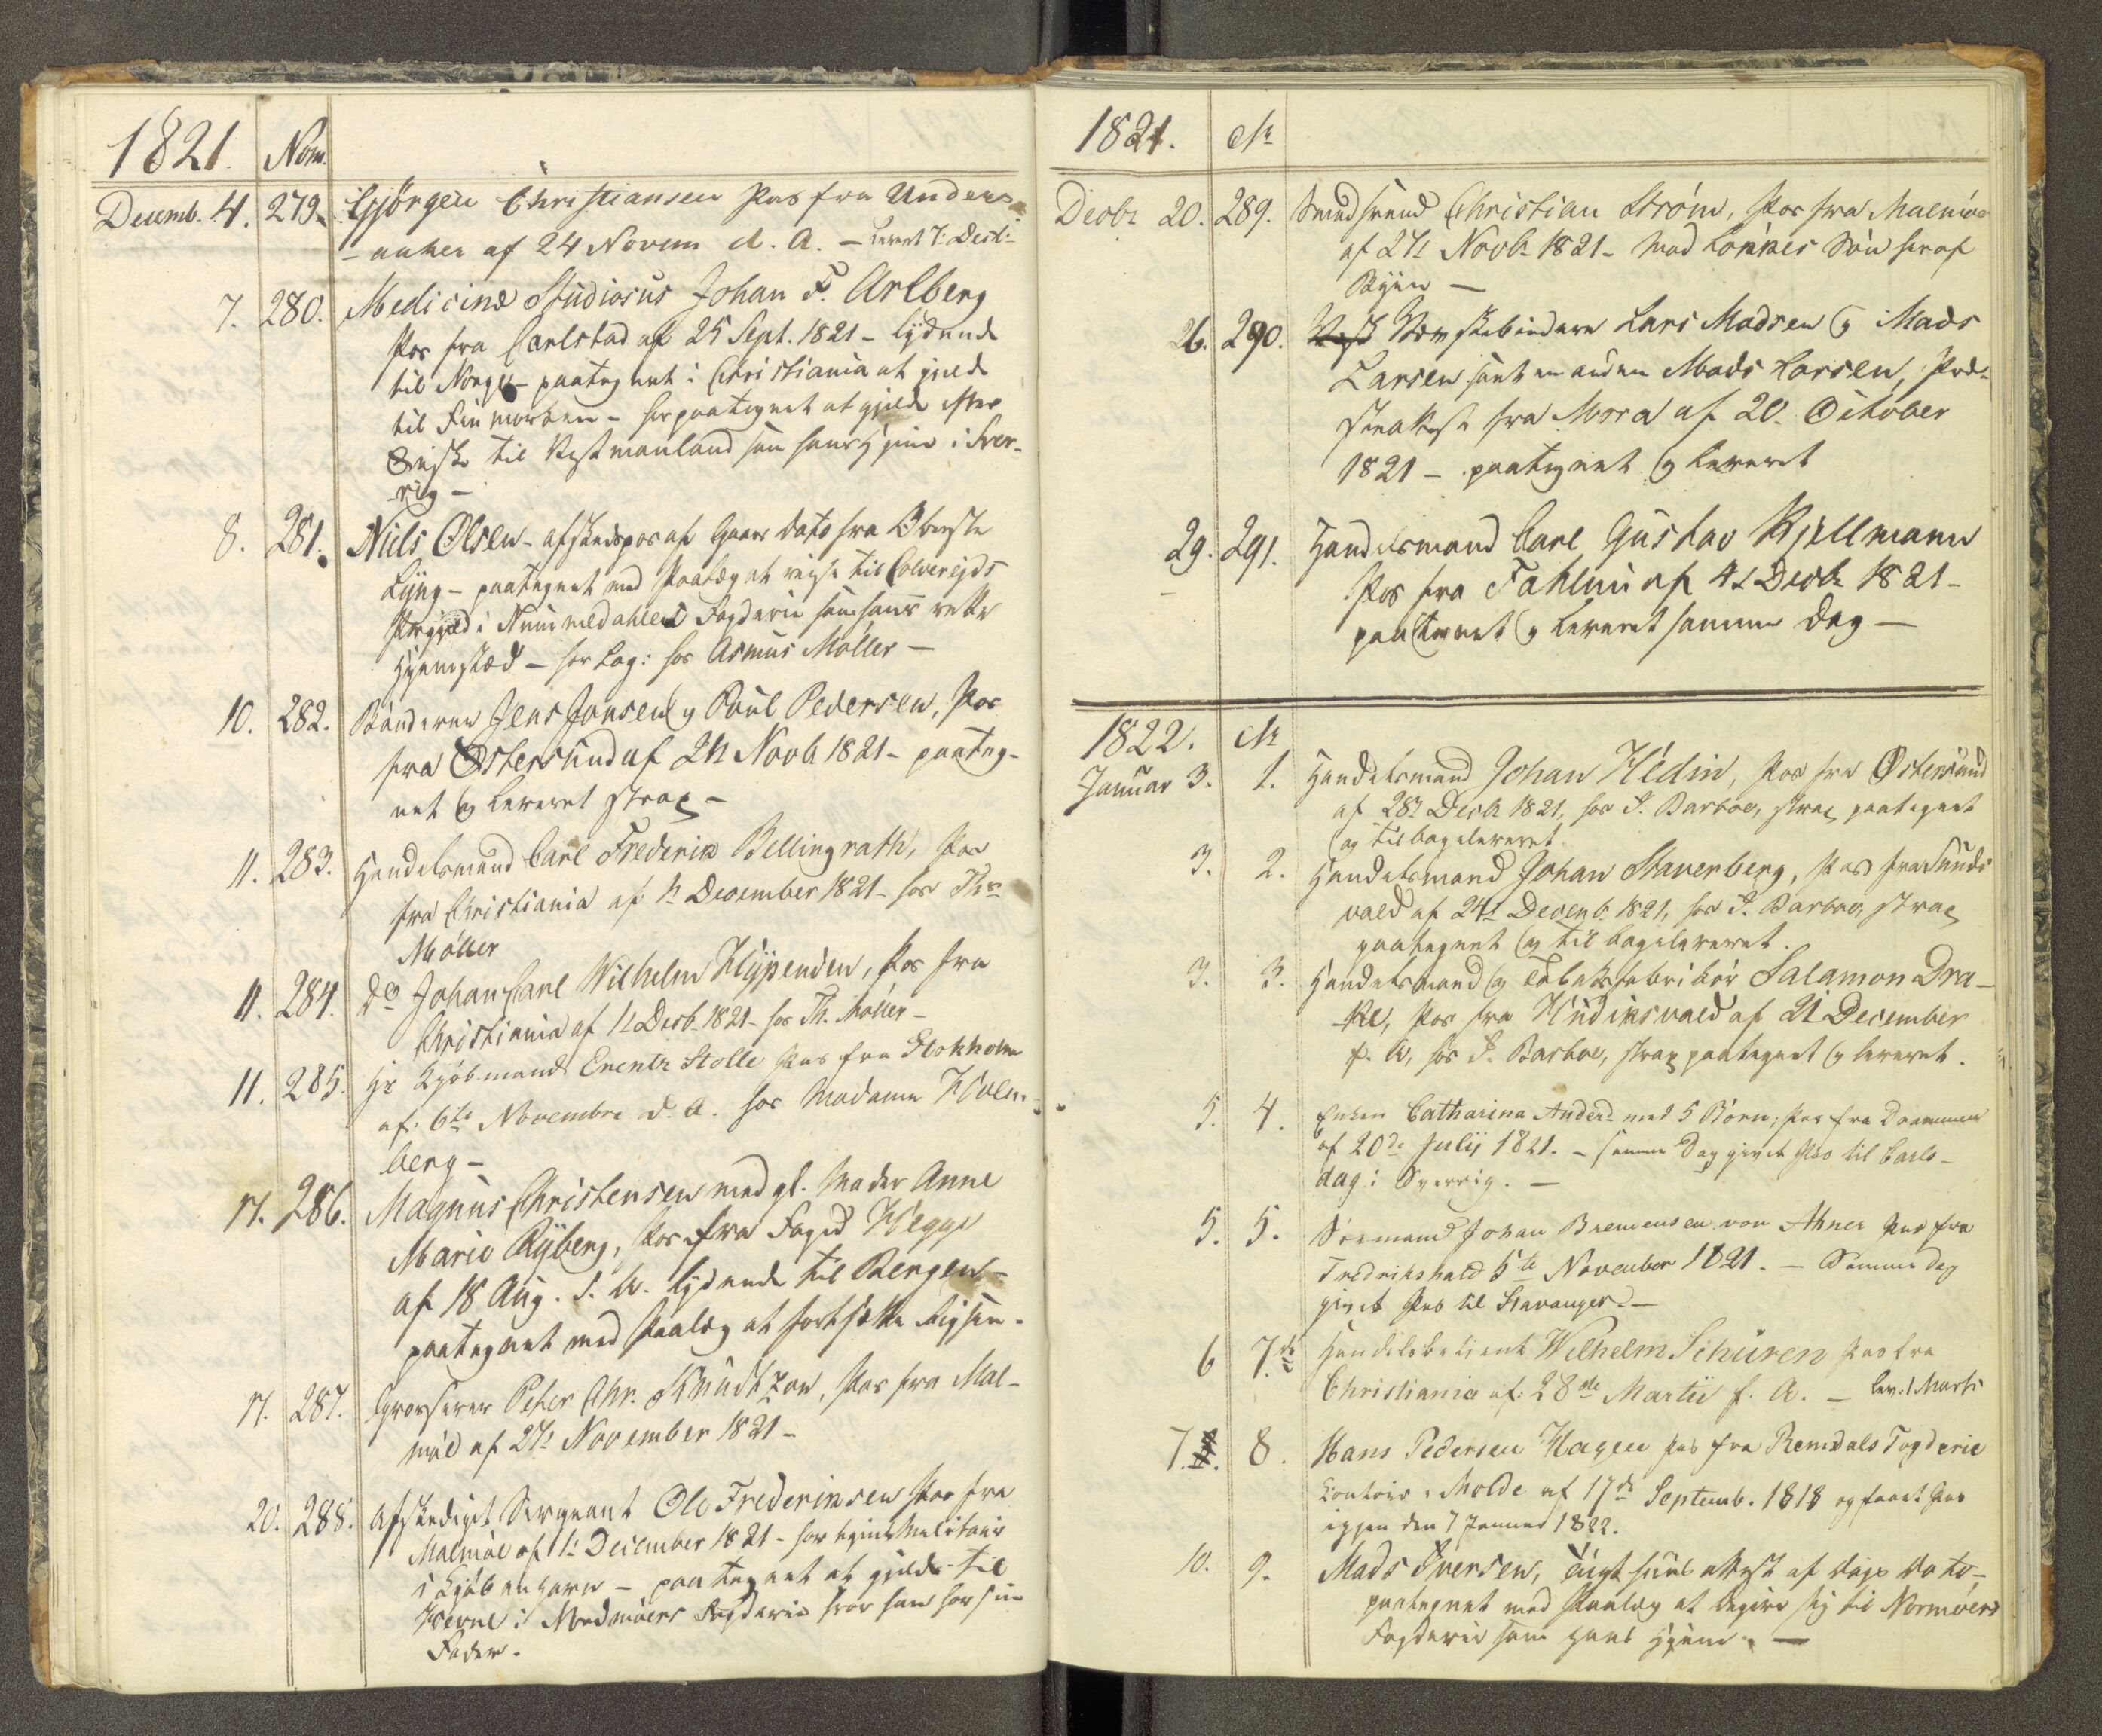 1821. Nom.
Decemb. 4. 279. Gjörgen Christiansen Pas fra Unders-
-aaker af 24 Novem d. A. - Levert 7. Decbr
7. 280. Medicinæ Studiosus Johan F. Arlberg
Pas fra Carlstad af 25 Sept. 1821 - lydende
til Norge - paategnet i Christiania at gjelde
til Finmarken - her paategnet at gjelde efter
Ønske til Vestmanland som hans Hjem i Sver-
-rig -
8. 281. Niels Olsen - afskedspas af Gaars dato fra Oberste
Lyng - paategnet med Paalæg at reise til Colvereids
Præstegjeld i Nummedahlens Fogderie som hans rette
Hjemsted - her Log: hos Asmus Møller -
10. 282. Bönderne Jens Jonsen og Poul Pedersen, Pas
fra Østersund af 24 Novb 1821 - paateg-
net og leveret strax -
11. 283. Handelsmand Carl Frederik Bellingrath, Pas
fra Christiania af 1 December 1821 - hos Ths
Møller
11. 284. Do Johan Carl Wilhelm Klÿpenden, Pas fra
Christiania af 1 Decb. 1821 - hos Th. Møller -
11. 285. Hr Kjöbmand Erentz Stolle Pas fra Stokholm
af 6te Novembre d. A. hos Madame Holm-
berg -
17. 286. Magnus Christensen med gl. Moder Anne
Marie Ryberg, Pas fra Foged Hegge
af 18 Aug. d. A. lydende til Bergen -
paategnet med Paalæg at fortsætte Reisen -
17. 287. Grosserer Peter Chr. Knudtzon, Pas fra Mal-
möe af 27 November 1821 -
20. 288. Afskediget Sergeant Ole Frederiksen Pas fra
Malmöe af 1 December 1821 - har tjent Militair
i Kjöbenhavn - paategnet at gjelde til
Hevne i Nordmöers Fogderie hvor han har sin
Fader.
1821. No
Decbr 20. 289. Smedsvend Christian Ström, Pas fra Malmöe
af 27 Novbr 1821 - Mad Lökkes Sön her af
Byen -
26. 290. Vævskebinderne Lars Madsen og Mads
Larsen samt en anden Mads Larsen, Præ-
steattest fra Mora af 20. October
1821 - paategnet og leveret
29. 291. Handelsmand Carl Gustav Kjellmann
Pas fra Fahlun af 4 Decbr 1821 -
paategnet og leveret samme Dag -
1822. No
Januar 3. 1. Handelsmand Johan Hedin, Pas fra Østersund
af 28 Decbr 1821, hos P. Barboe, strax paategnet
og tilbageleveret
3. 2. Handelsmand Johan Stavenberg, Pas fra Sunds
vald af 24 Decemb. 1821, hos P. Barboe, strax
paategnet og tilbageleveret.
3. 3. Handelsmand og Tobaksfabrikör Salamon Dra-
-ke, Pas fra Hudiksvald af 21 December
f. A, hos P. Barboe, strax paategnet og leveret.
5. 4. Enken Catharina Anders med 5 Börn, Pas fra Drammen
af 20de Julij 1821. - samme Dag givet Pas til Carls-
dag i Sverrig. -
5. 5. Sömand Johan Bremensen von Ahnen Pas fra
Fredrikshald 5te November 1821. - Samme Dag
givet Pas til Stavanger -
6 7de Handelsbetient Wilhelm Schüren Pas fra
Christiania af: 28de Martii f. A. - Lev: 1 Marts
7. 8. Hans Pedersen Hagen Pas fra Romsdals Fogderie
Contoir i Molde af 17de Septemb. 1818 og faaet Pas
igjen den 7 Januar 1822.
10. 9. Mads Iversen, attest af Dags Dato,
paategnet med Paalæg at begive sig til Nordmöers
Fogderie som hans Hjem. -